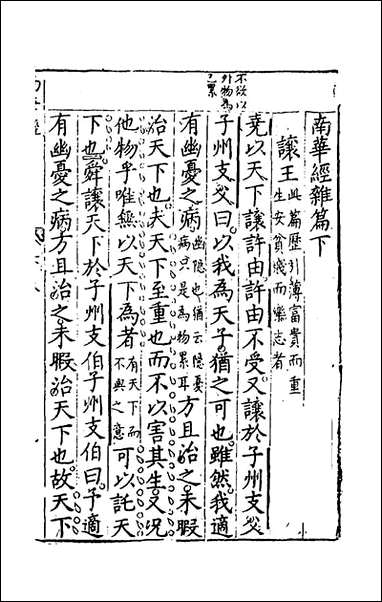 南華經雜篇下
讓王
此篇歷引薄富貴而重
生安貧賤而樂志者
堯以天下讓許由許由不受又讓於子州支父
子州支父曰以我爲天子猶之可也雖然我適
不欲以
外物爲
己累
有幽憂之病
幽隱也猶云隱憂
病只是爲物累耳
方且治之未暇
治天下也夫天下至重也而不以害其生又况
他物乎唯無以天下爲者
有天下而
不與之意
可以託天
下也舜讓天下於子州支伯子州支伯曰予適
有幽憂之病方且治之未暇治天下也故天下